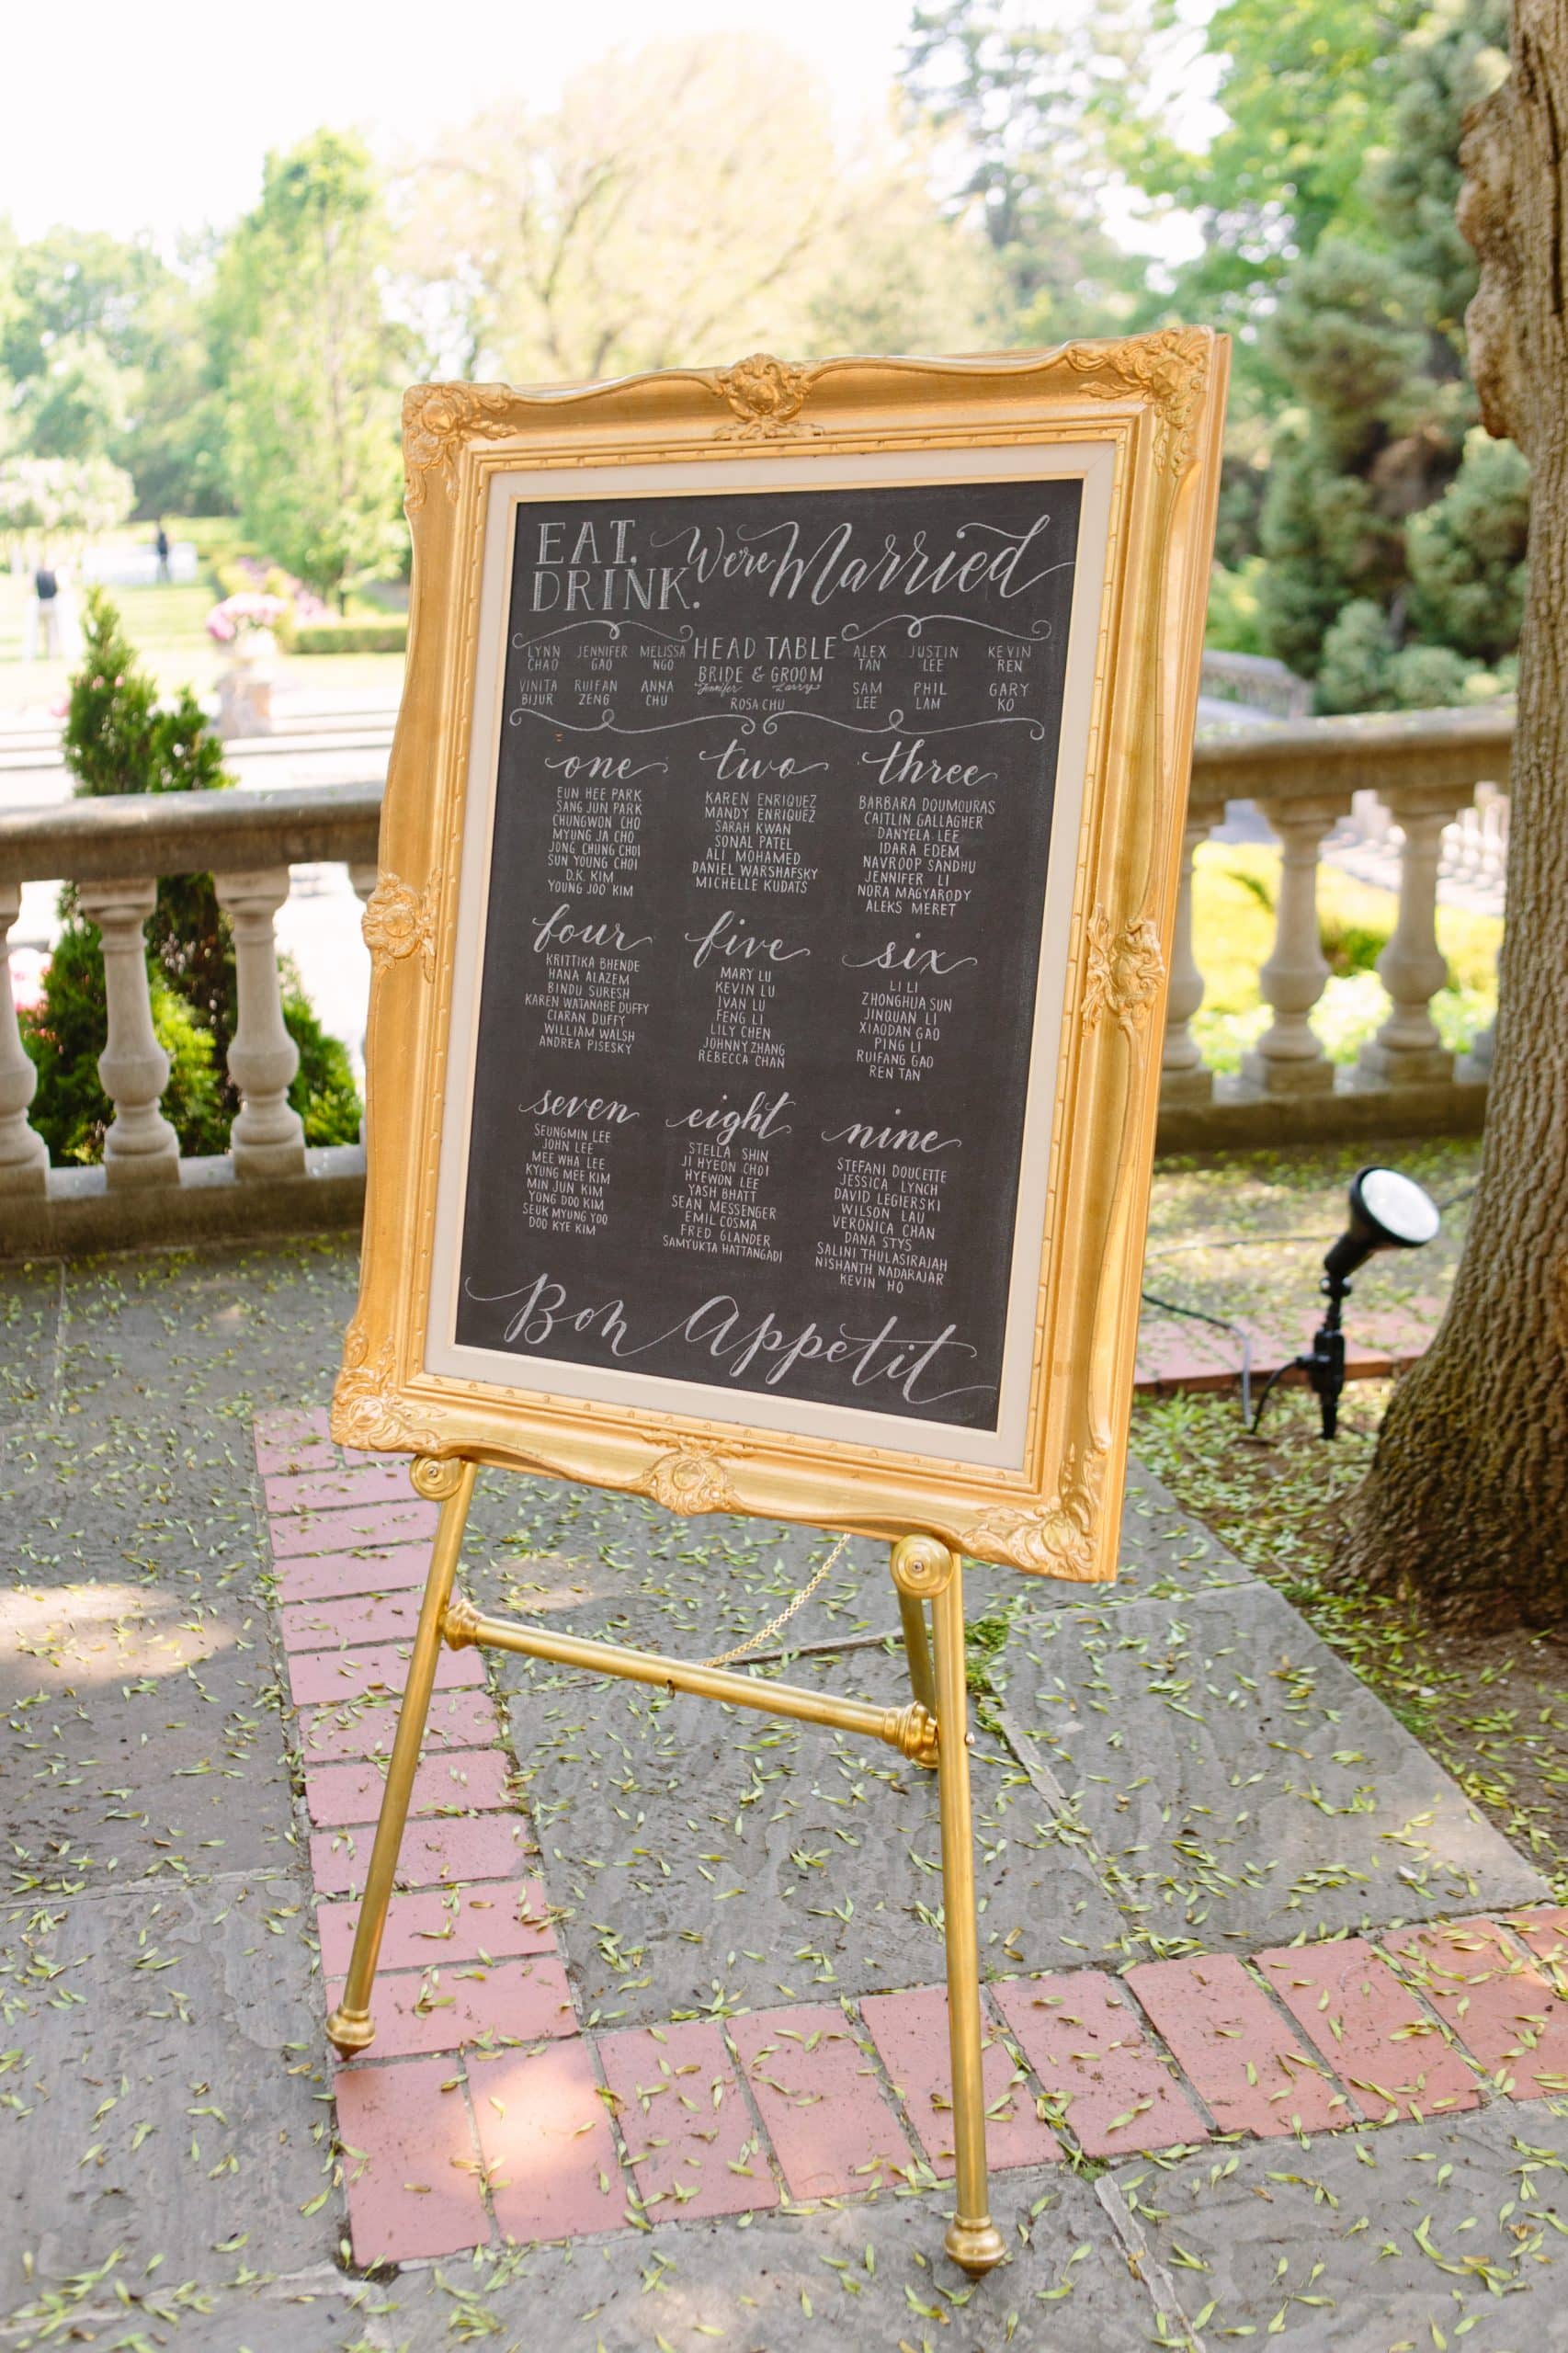 EAT. DRINK. We're Married
HEAD TABLE
LYNN CHAO
JENNIFER GAO
MELISSA NGO
ALEX TAN
JUSTIN LEE
KEVIN REN
BRIDE & GROOM
Jennifer Larry
VINITA BIJUR
RUIFAN ZENG
ANNA CHU
ROSA CHU
SAM LEE
PHIL LAM
GARY KO
one
EUN HEE PARK
SANG JUN PARK
CHUNGWON CHO
MYUNG JA CHO
JONG CHUNG CHOI
SUN YOUNG CHOI
D.K. KIM
YOUNG JOO KIM
two
KAREN ENRIQUEZ
MANDY ENRIQUEZ
SARAH KWAN
SONAL PATEL
ALI MOHAMED
DANIEL WARSHAFSKY
MICHELLE KUDATS
three
BARBARA DOUMOURAS
CAITLIN GALLAGHER
DANYELA LEE
IDARA EDEM
NAVROOP SANDHU
JENNIFER LI
NORA MAGYARODY
ALEKS MERET
four
KRITTIKA BHENDE
HANA ALAZEM
BINDU SURESH
KAREN WATANABE DUFFY
CIARAN DUFFY
WILLIAM WALSH
ANDREA PISESKY
five
MARY LU
KEVIN LU
IVAN LU
FENG LI
LILY CHEN
JOHNNY ZHANG
REBECCA CHAN
six
LI LI
ZHONGHUA SUN
JINQUAN LI
XIAODAN GAO
PING LI
RUIFANG GAO
REN TAN
seven
SEUNGMIN LEE
JOHN LEE
MEE WHA LEE
KYUNG MEE KIM
MIN JUN KIM
YONG DOO KIM
SEUK MYUNG YOO
DOO KYE KIM
eight
STELLA SHIN
JI HYEON CHOI
HYEWON LEE
YASH BHATT
SEAN MESSENGER
EMIL COSMA
FRED GLANDER
SAMYUKTA HATTANGADI
nine
STEFANI DOUCETTE
JESSICA LYNCH
DAVID LEGIERSKI
WILSON LAU
VERONICA CHAN
DANA STYS
SALINI THULASIRAJAH
NISHANTH NADARAJAR
KEVIN HO
Bon Appetit